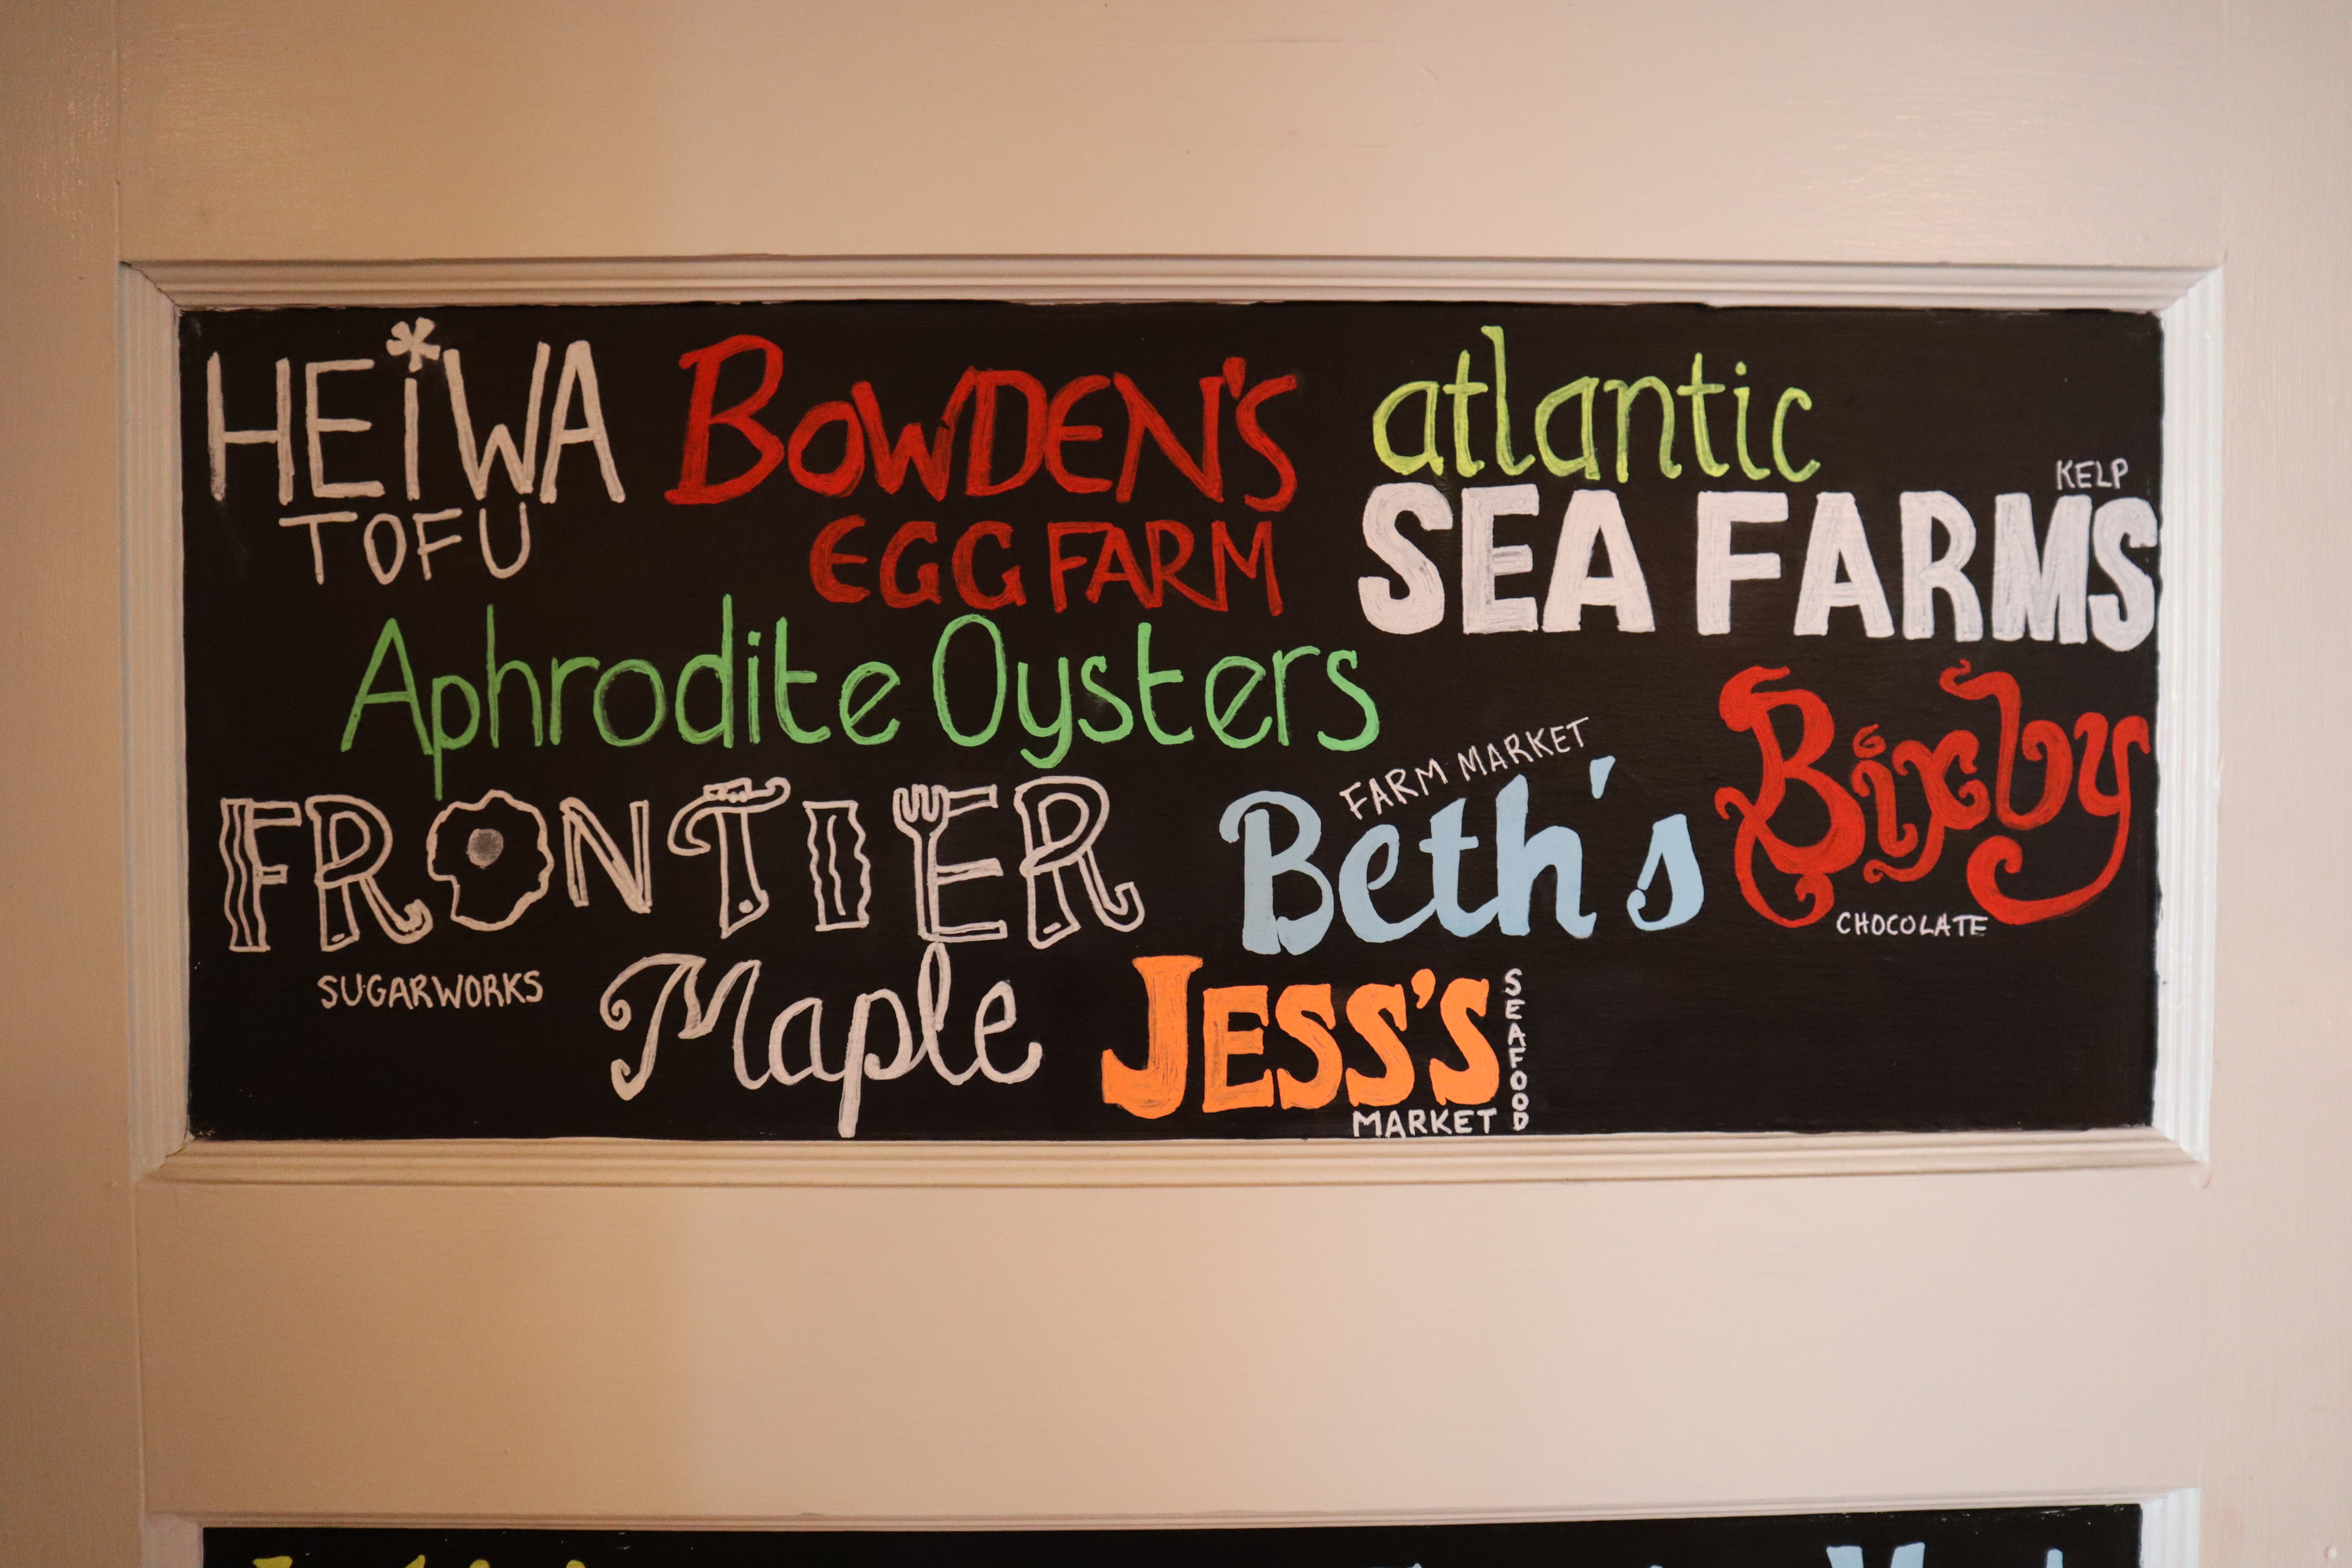 HEiWA
TOFU
BOWDEN'S
EGG FARM
atlantic
KELP
SEA FARMS
Aphrodite Oysters
FRONTIER
SUGARWORKS
Maple
FARM MARKET
Beth's
Bixby
CHOCOLATE
JESS'S
SEAFOOD
MARKET